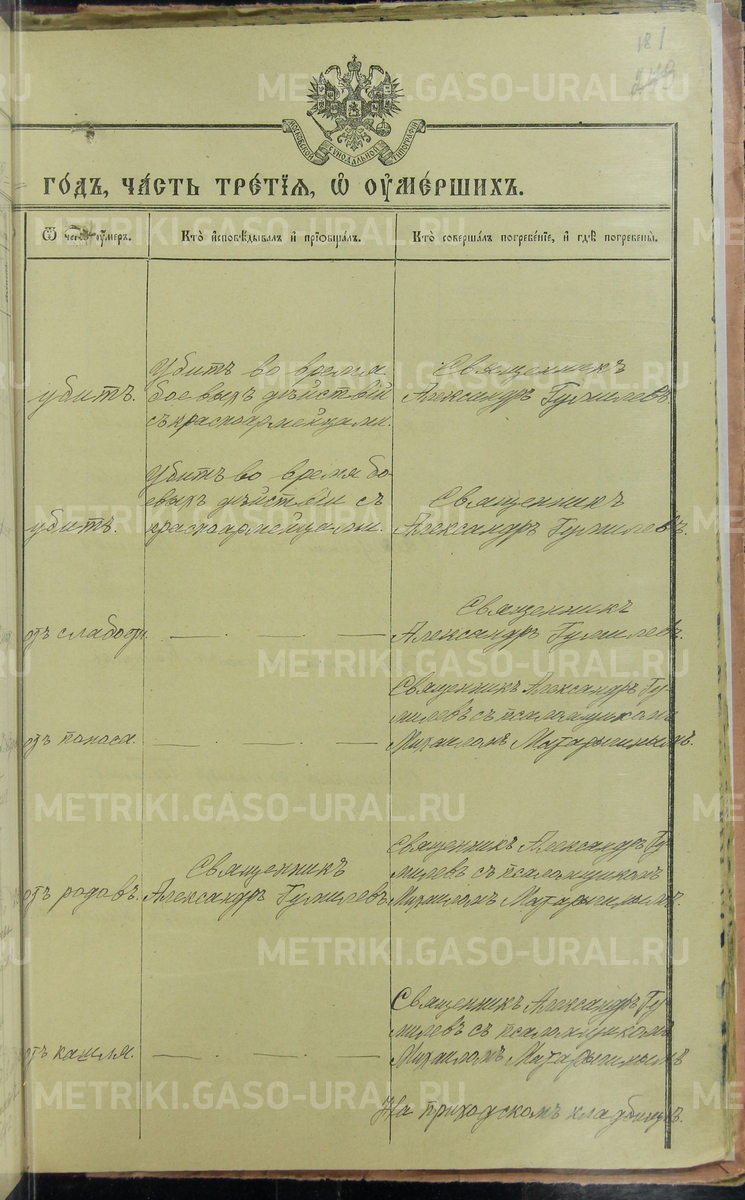 181
МОСКОВСКОЙ СѴНОДАЛЬНОЙ ТИПОГРАФІИ
ГО́ДЪ, ЧА́СТЬ ТРЕ́ТІѦ, Ѡ҆ ОУ҆МЕ́РШИХЪ.
Ѿ чегѡ̀ оу҆́меръ.
Кто̀ и҆сповѣ́дывалъ и҆ прїѡбща́лъ.
Кто̀ соверша́лъ погребе́нїе, и҆ гдѣ̀ погребены̀.
убитъ.
Убитъ во время
боевыхъ дѣйствій
съ красноармейцами.
Священникъ
Александръ Гумилевъ
убитъ.
Убитъ во время бо-
евыхъ дѣйствій съ
красноармейцами.
Священникъ
Александръ Гумилевъ.
отъ слабости
Священникъ
Александръ Гумилевъ.
отъ поноса.
Священникъ Александръ Гу-
милевъ съ псаломщикомъ
Михаиломъ
отъ родовъ.
Священникъ
Александръ Гумилевъ
Священникъ Александръ Гу-
милевъ съ псаломщикомъ
Михаиломъ
отъ кашля.
Священникъ Александръ Гу-
милевъ съ псаломщикомъ
Михаиломъ
На приходскомъ кладбищѣ.
METRIKI.GASO-URAL.RU